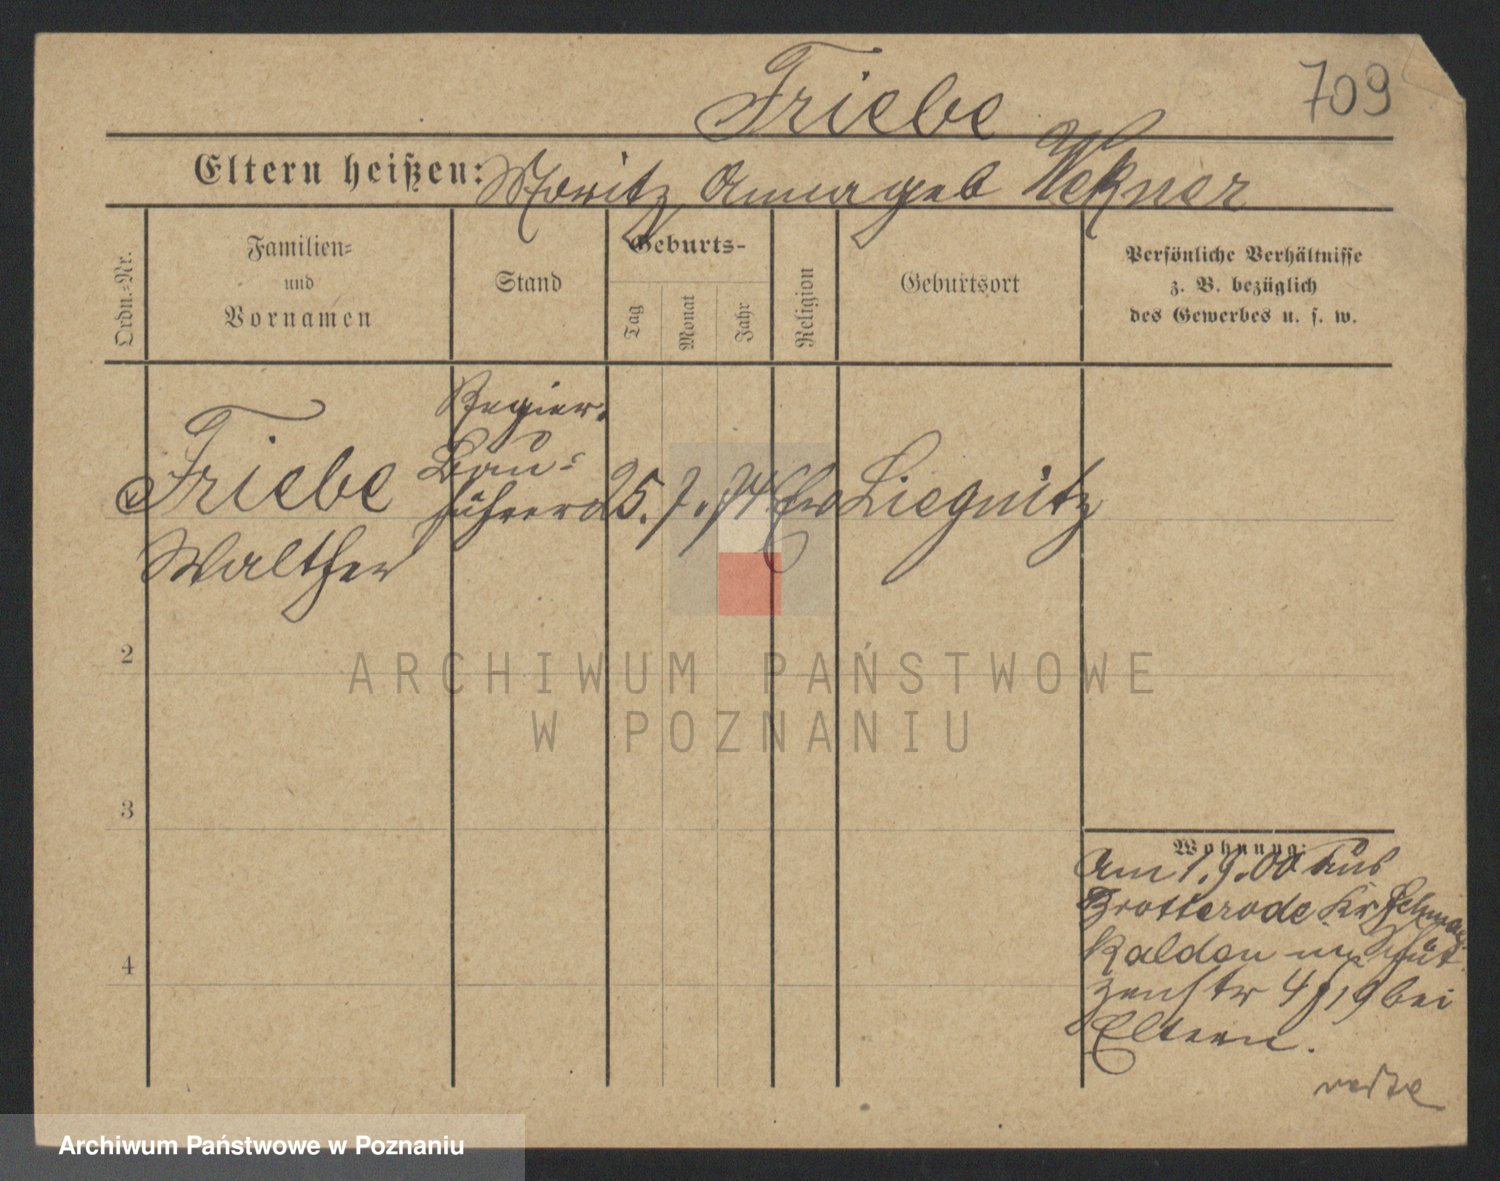 709
Friebe
Eltern heißen: Moritz Anna geb
Ordn.-Nr.
Familien-
und
Vornamen
Stand
Geburts-
Tag
Monat
Jahr
Religion
Geburtsort
Persönliche Verhältnisse
z. B. bezüglich
des Gewerbes u. s. w.
Friebe
Walther
Regier.
Bau-
führer
25. 7. 74
Ev
Liegnitz
2
3
4
Wohnung:
Am 1. 9. 00 aus
Brotterode Kr Schmal
kalden n. Schüt
zenstr 19 bei
Eltern.
ARCHIWUM PAŃSTWOWE
W POZNANIU
Archiwum Państwowe w Poznaniu